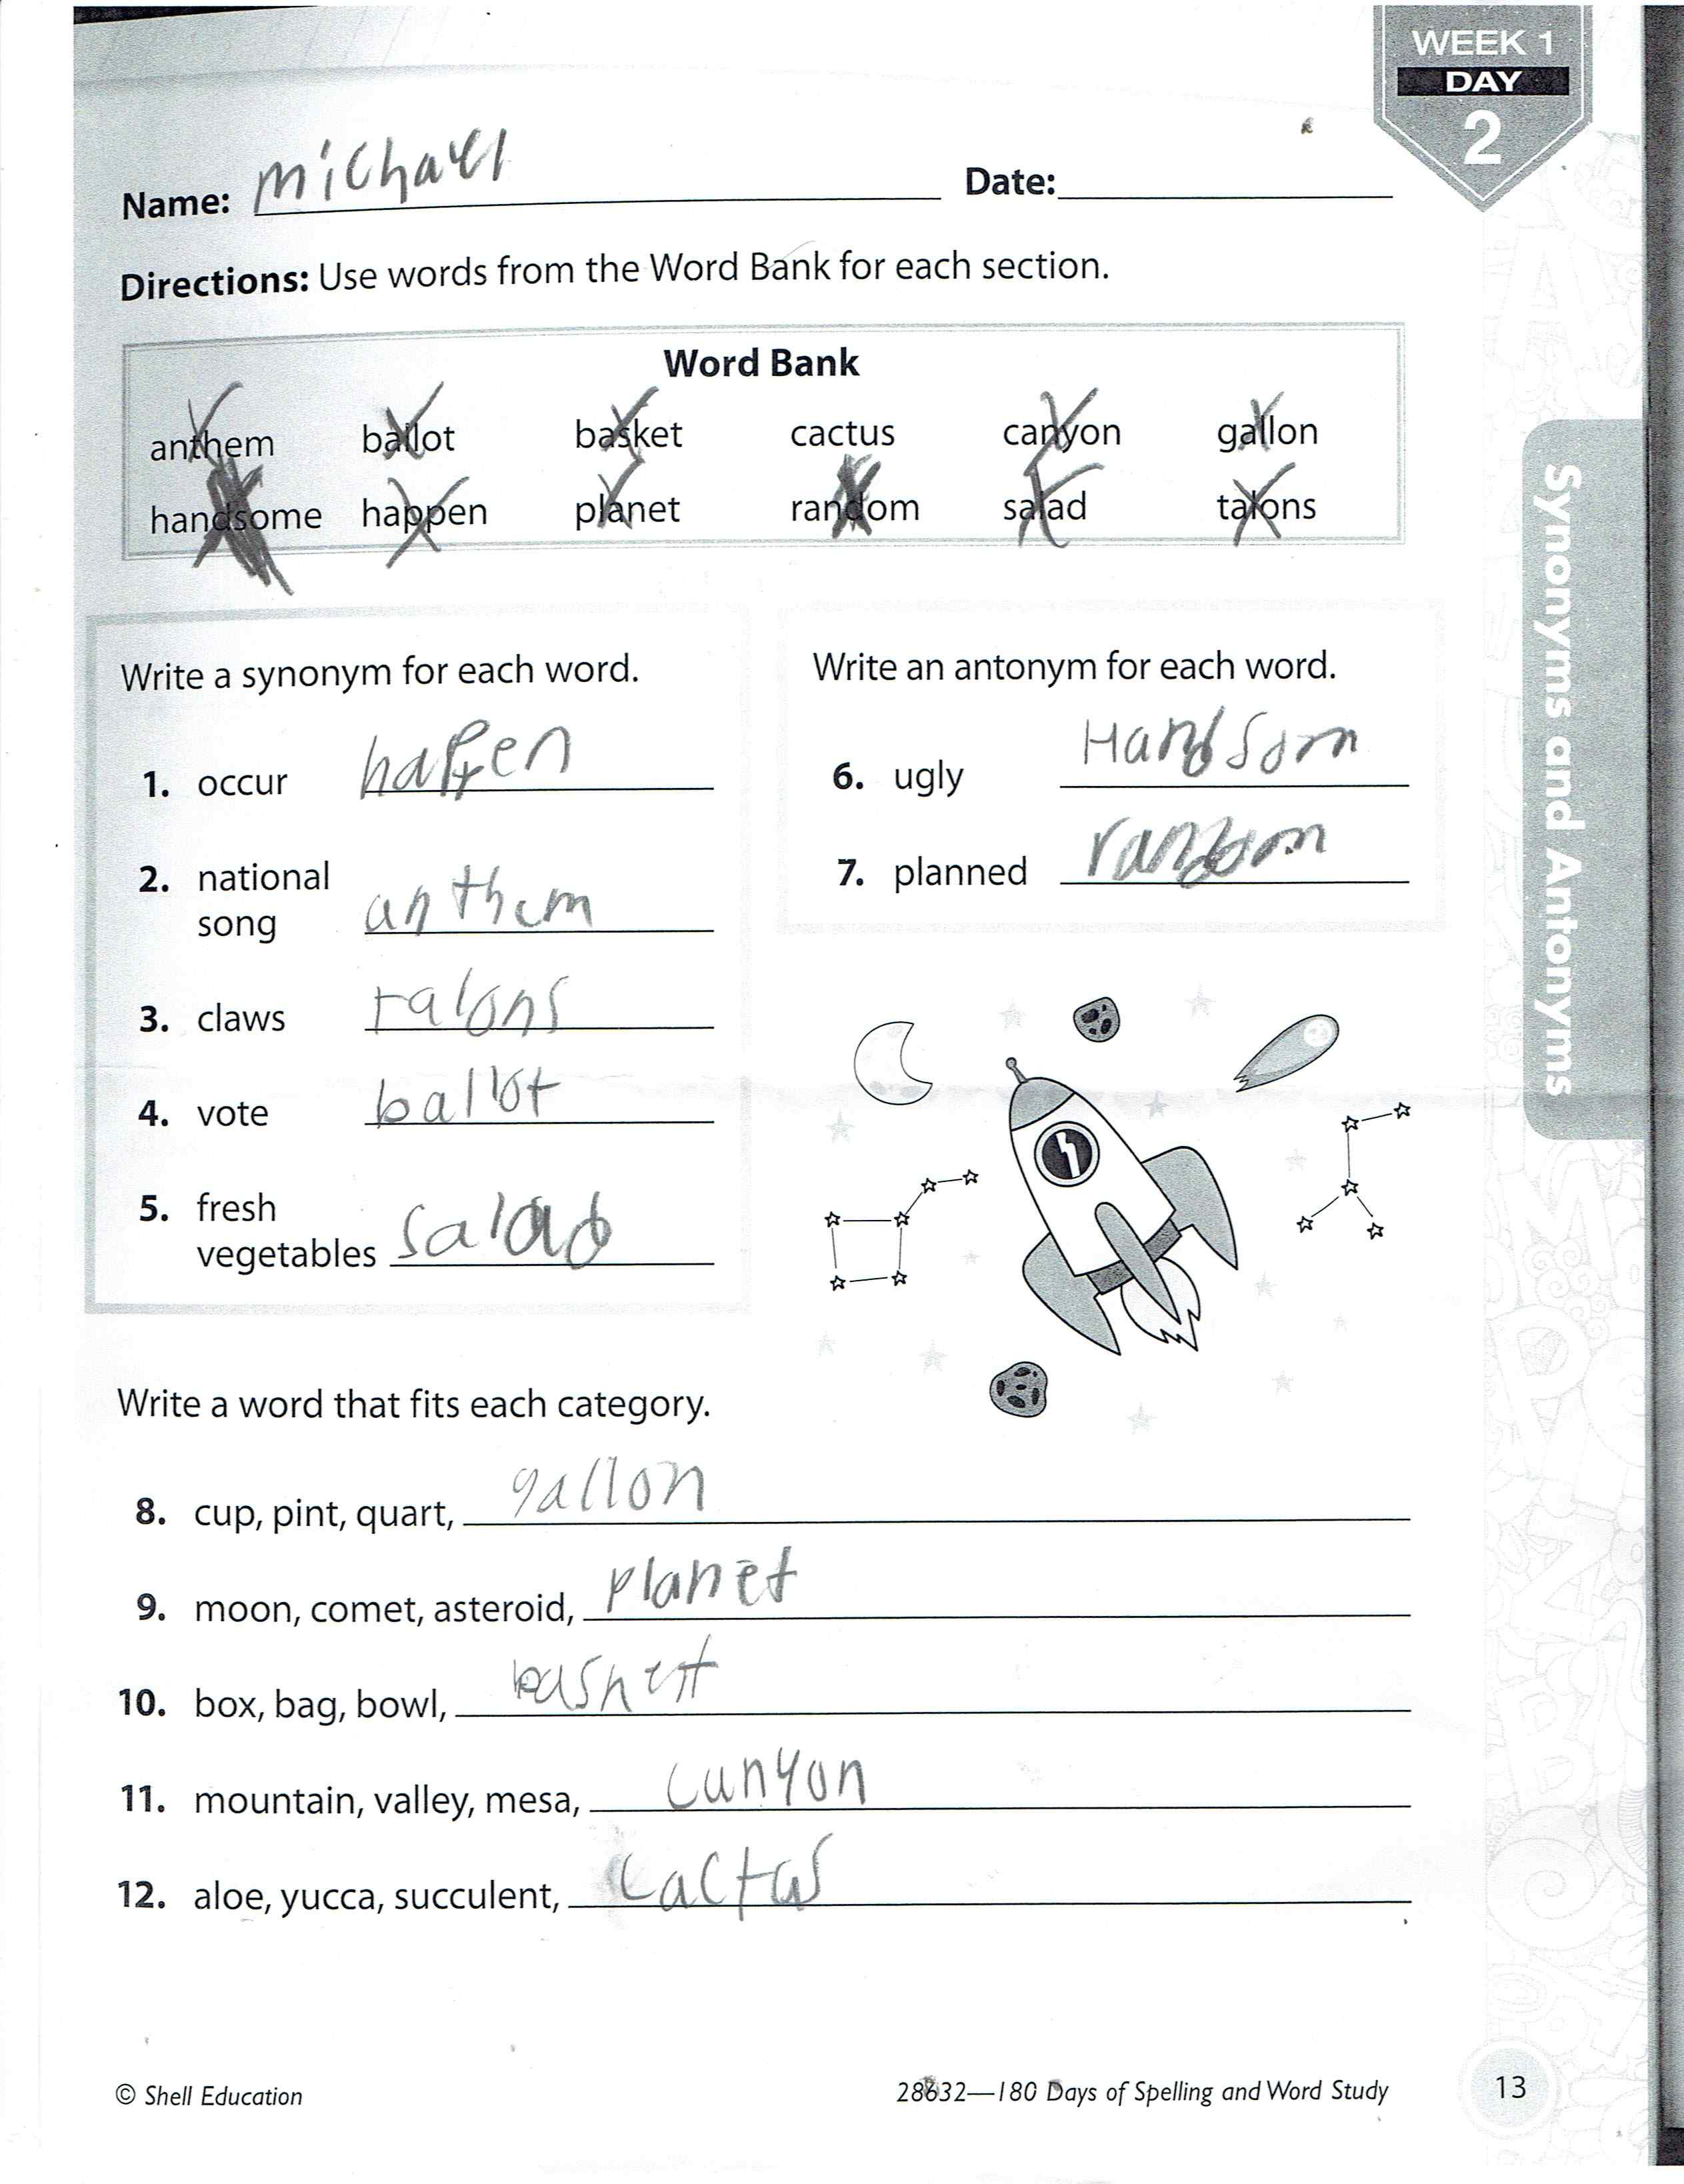 WEEK 1
DAY
2
Name: michael Date:
Directions: Use words from the Word Bank for each section.
Word Bank
anthem ballot basket cactus canyon gallon
handsome happen planet random salad talons
Synonyms and Antonyms
Write a synonym for each word.
1. occur happen
2. national
song anthem
3. claws talons
4. vote ballot
5. fresh
vegetables salad
Write an antonym for each word.
6. ugly Handsom
7. planned random
Write a word that fits each category.
8. cup, pint, quart, gallon
9. moon, comet, asteroid, planet
10. box, bag, bowl, bashett
11. mountain, valley, mesa, canyon
12. aloe, yucca, succulent, cactus
© Shell Education 28632—180 Days of Spelling and Word Study 13